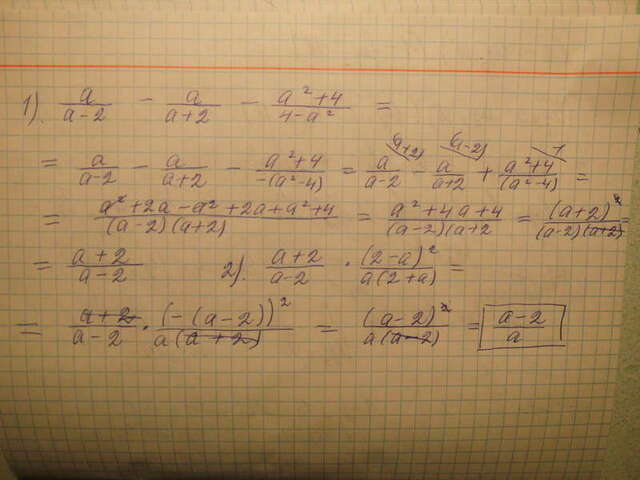 1). a/(a-2) - a/(a+2) - (a²+4)/(4-a²) =
= a/(a-2) - a/(a+2) - (a²+4)/(-(a²-4)) = a^(a+2)/(a-2) - a^(a-2)/(a+2) + (a²+4)^1/(a²-4) =
= (a²+2a-a²+2a+a²+4)/((a-2)(a+2)) = (a²+4a+4)/((a-2)(a+2) = (a+2)²/((a-2)(a+2)) =
= (a+2)/(a-2) 2). (a+2)/(a-2) · (2-a)²/(a(2+a)) =
= (a+2)/(a-2) · (-(a-2))²/(a(a+2)) = (a-2)²/(a(a-2)) = (a-2)/a